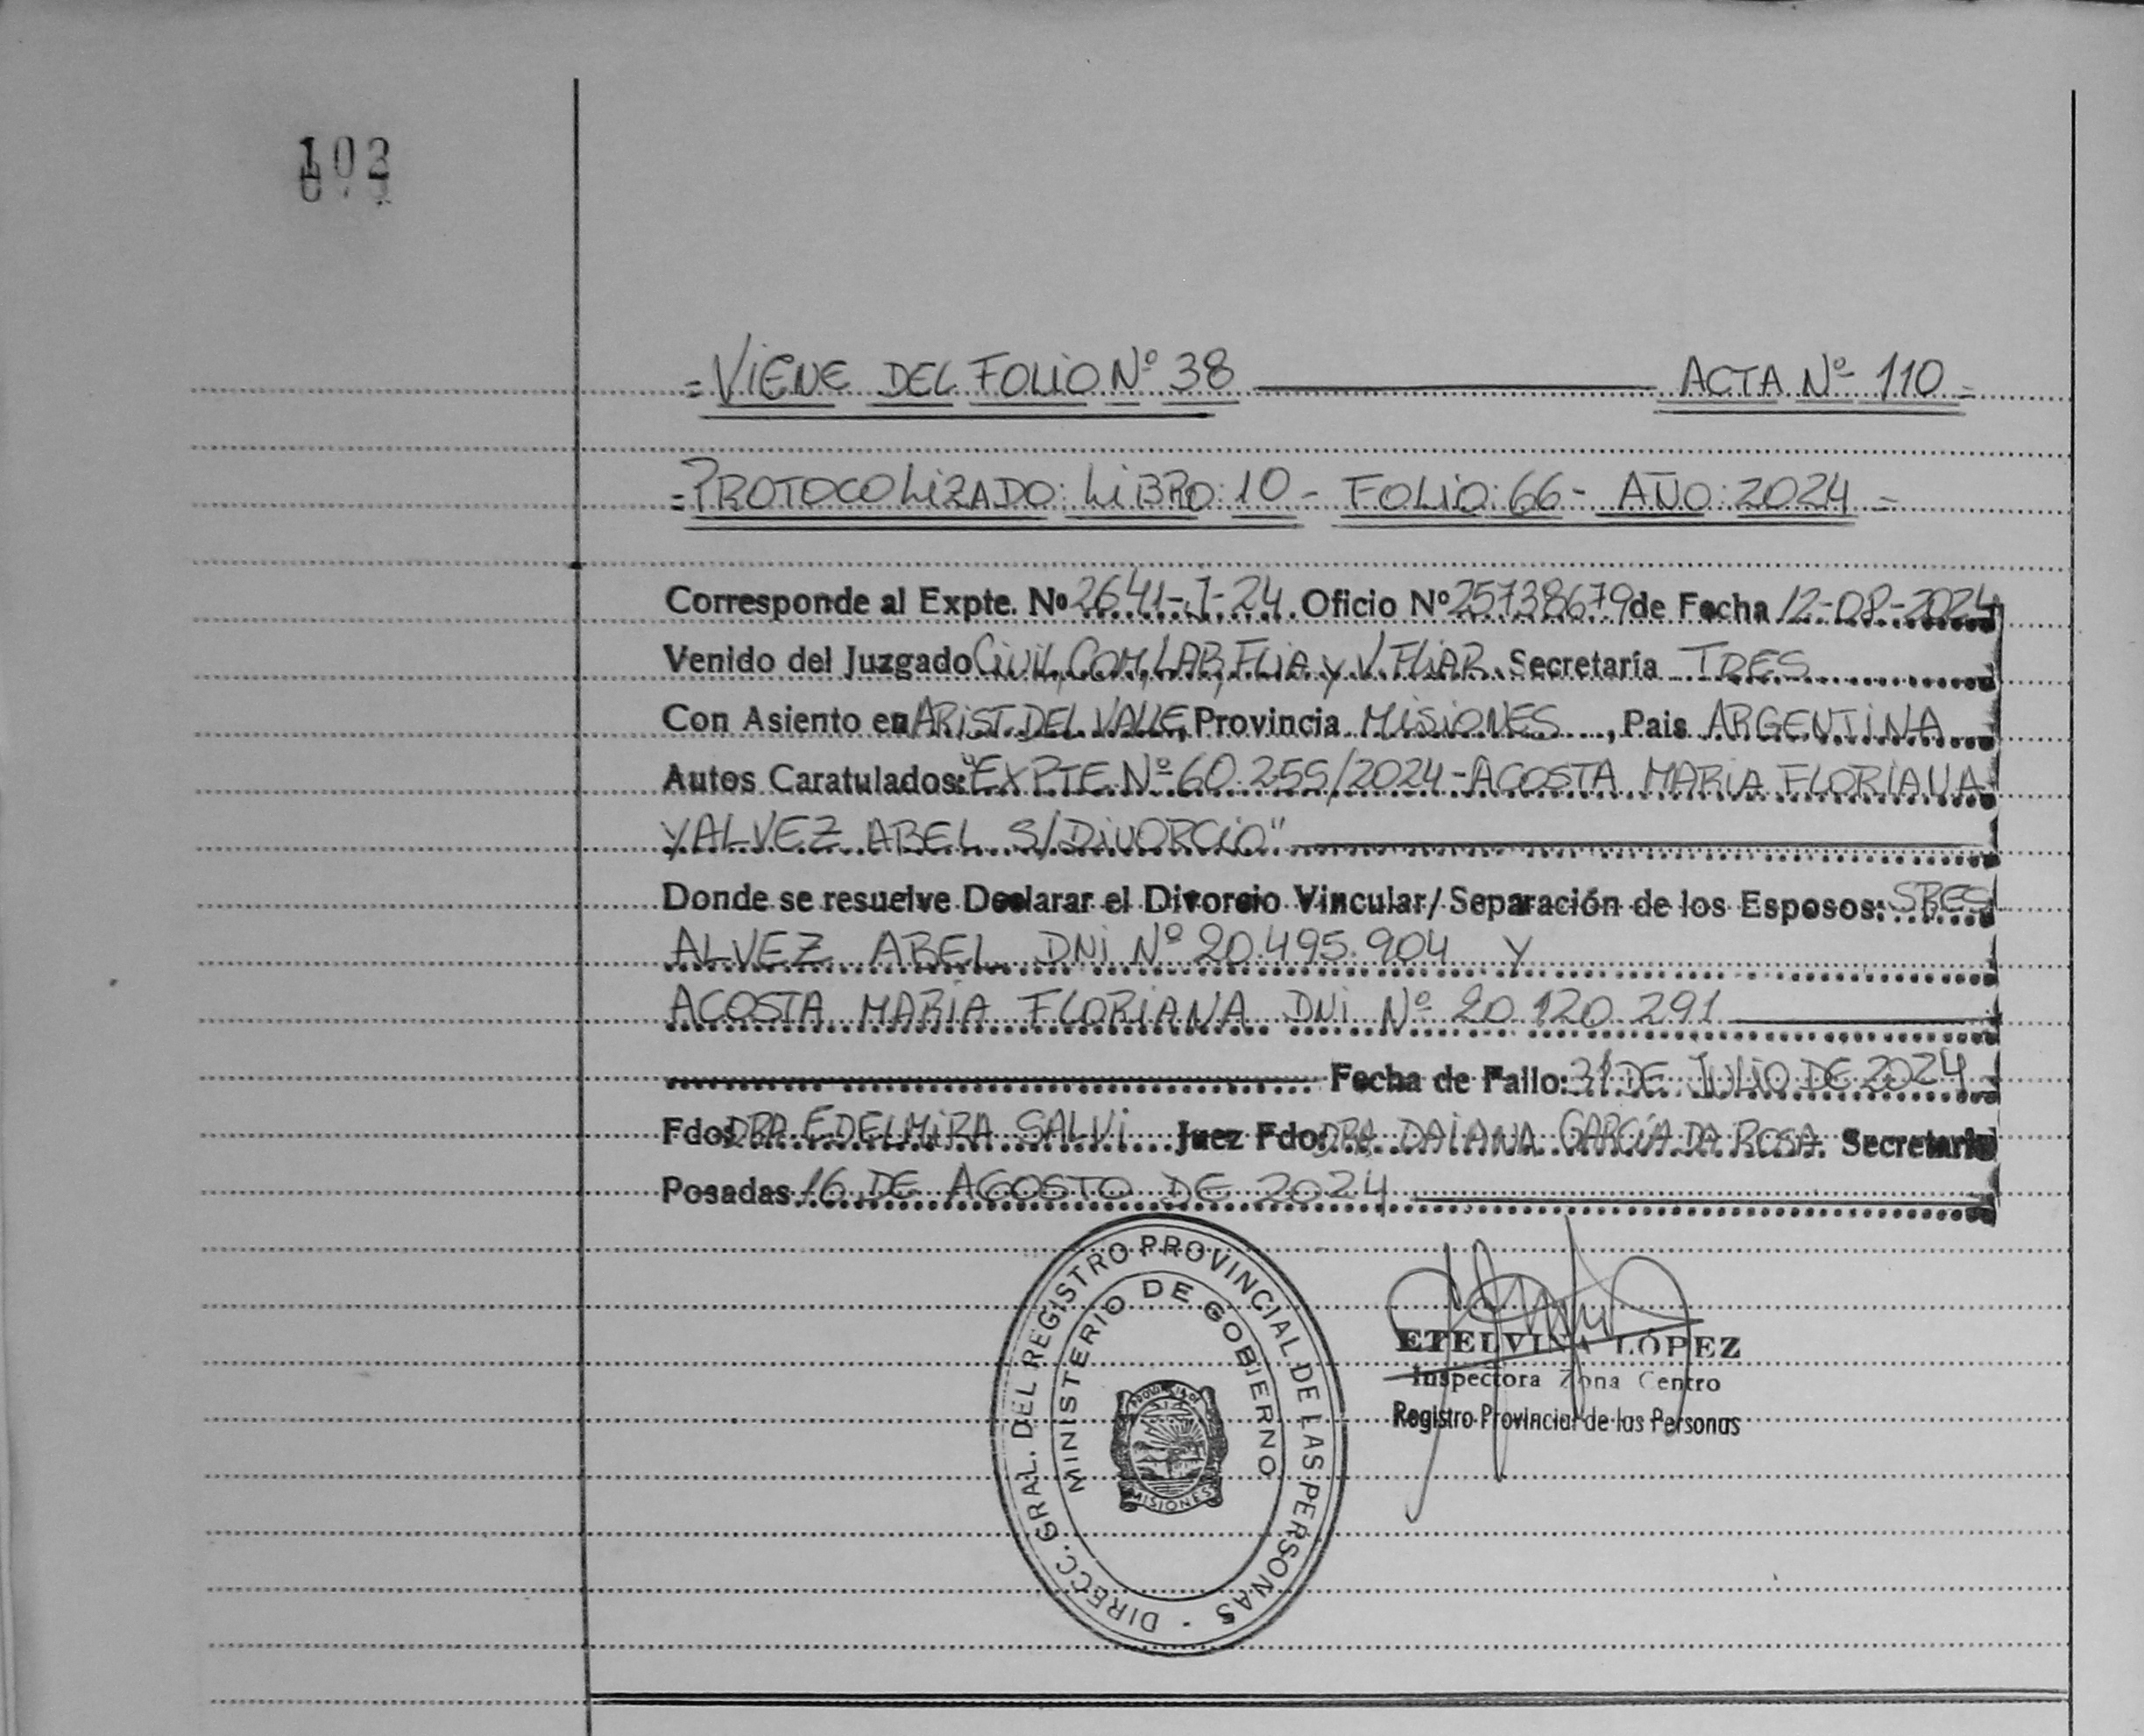 102
= VIENE DEL FOLIO Nº 38 ACTA Nº 110 =
= PROTOCOLIZADO: LIBRO: 10 - FOLIO: 66 - AÑO: 2024 =
Corresponde al Expte. Nº 2641-J-24. Oficio Nº 25738679 de Fecha 12-08-2024
Venido del Juzgado CIVIL, COM, LAB, FLIA Y V. FLIAR. Secretaría TRES
Con Asiento en ARIST. DEL VALLE, Provincia MISIONES, Pais ARGENTINA
Autos Caratulados: "EXPTE Nº 60.255/2024 - ACOSTA MARIA FLORIANA
Y ALVEZ ABEL S/DIVORCIO"
Donde se resuelve Declarar el Divorcio Vincular/Separación de los Esposos: SRES
ALVEZ ABEL DNI Nº 20.495.904 Y
ACOSTA MARIA FLORIANA DNI Nº 20.120.291
Fecha de Fallo: 31 DE JULIO DE 2024
Fdo: DRA EDELMIRA SALVI. Juez Fdo: DRA. DAIANA GARCÍA DA ROSA. Secretario
Posadas 16 DE AGOSTO DE 2024
DIRECC. GRAL. DEL REGISTRO PROVINCIAL DE LAS PERSONAS -
MINISTERIO DE GOBIERNO
MISIONES
ETELVINA LÓPEZ
Inspectora Zona Centro
Registro Provincial de las Personas